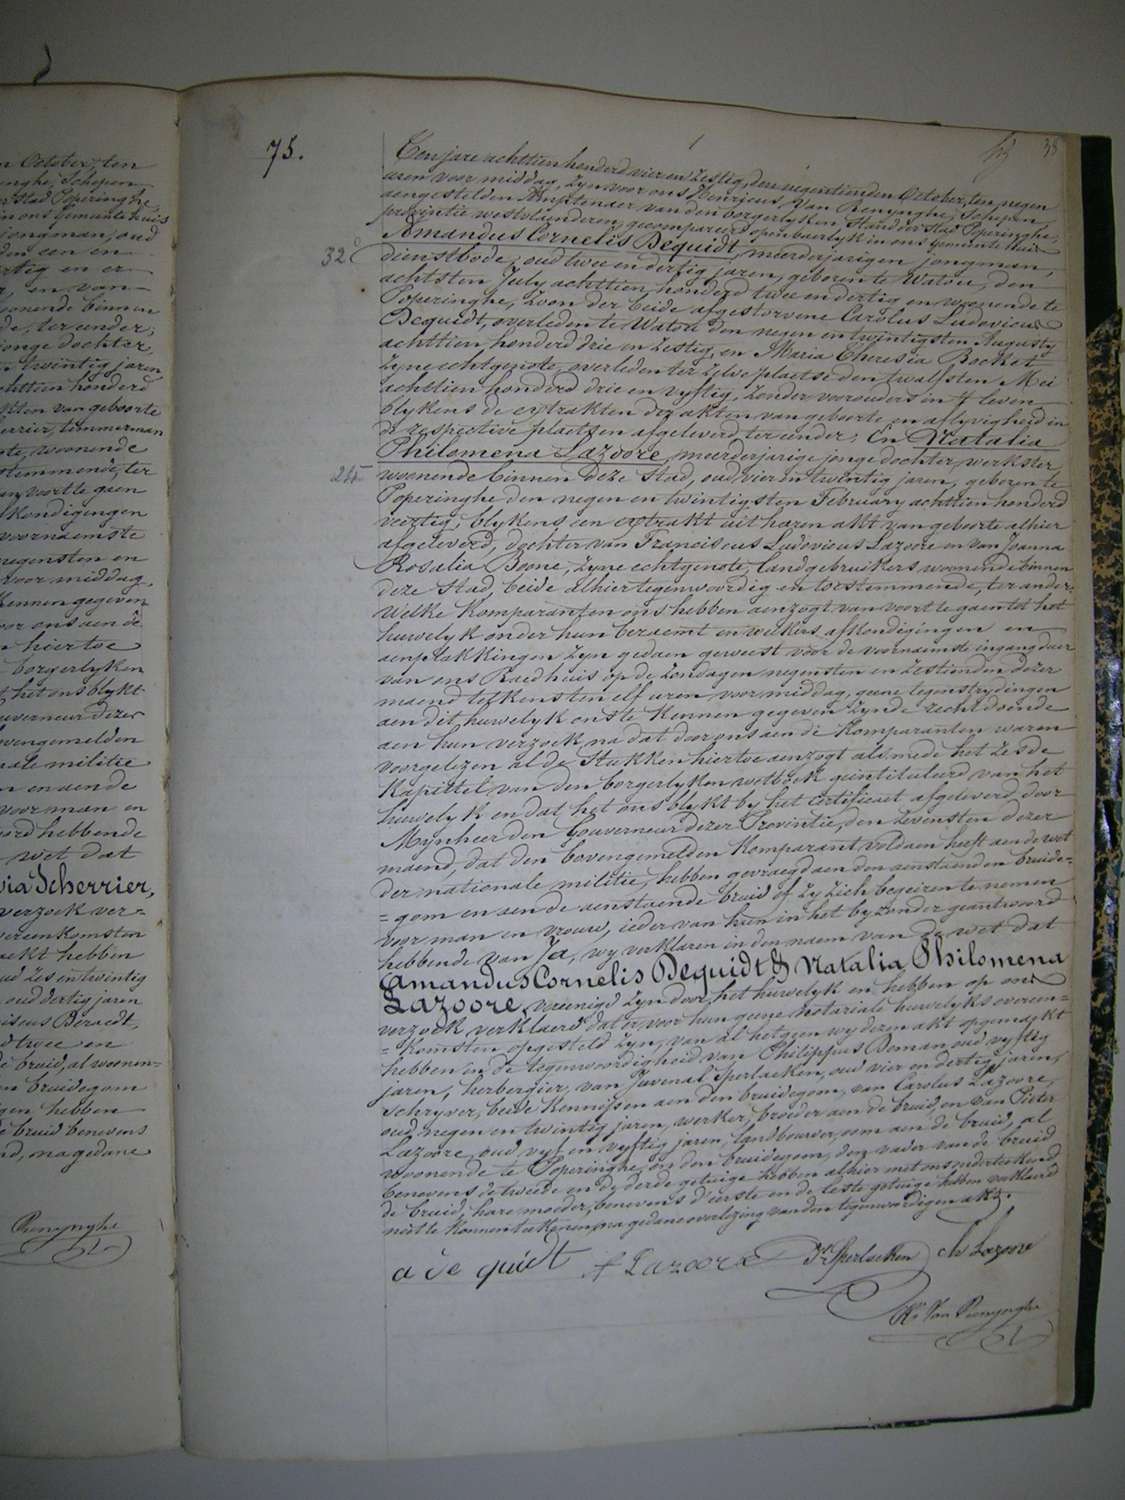 n October, ten
enghe, Schepen
r Stad Poperinghe,
in ons Gemeente huis
jongman, oud
den een en
rtig en er
, en van
onende binnen
de ter eender;
jonge dochter,
n twintig jaren,
chttien honderd
kten van geboorte
errier, timmerman
nte, woonende
stemmende, ter
an voort te gaen
kondigingen
voornaemste
negensten en
voor middag,
kennen gegeven
oor ons aen de
n hiertoe
borgerlyken
t het ons blykt
ouverneur dezer
vengemelden
nale militie
n en aen de
voor man en
oord hebbende
wet dat
via Scherrier,
verzoek ver=
vereenkomsten
aekt hebben
ud zes in twintig
oud dertig jaren
iscus Beraedt,
d twee en
de bruid, al woonen=
n bruidegom
gen hebben
e bruid benevens
nd, na gedane
Renynghe
75.
38
Ten jare achttien honderd vier en zestig, den negentienden October, ten negen
uren voor middag, zyn voor ons Henricus Van Renynghe, Schepen
aengestelden Amptenaer van den borgerlyken Stand der Stad Poperinghe,
provintie westvlaenderen, gecompareerd openbaerlyk in ons gemeente huis
Amandus Cornelis Dequidt, meerderjarigen jongman,
32
dienstbode, oud twee en dertig jaren, geboren te Watou, den
achtsten July achttien honderd twee en dertig en woonende te
Poperinghe, zoon der beide afgestorvene Carolus Ludovicus
Dequidt, overleden te Watou den negen en twintigsten Augusty
achttien honderd drie en zestig, en Maria Theresia Bocket
zyne echtgenote, overleden ter zelve plaetse den twalfsten Mei
achttien honderd drie en vyftig, zonder voorouders in 't leven
blykens de extrakten der akten van geboorte en aflyvigheid in
de respective plaetsen afgeleverd, ter eender; En Natalia
Philomena Lazoore, meerderjarige jonge dochter, werkster,
24
woonende binnen deze Stad, oud vier in twintig jaren, geboren te
Poperinghe den negen en twintigsten February achttien honderd
veertig, blykens een extrakt uit haren akt van geboorte alhier
afgeleverd, dochter van Franciscus Ludovicus Lazoore en van Joanna
Rosalia Boone, zyne echtgenote, landgebruikers, woonende binnen
deze Stad, beide alhier tegenwoordig en toestemmende, ter andere
Welke komparanten ons hebben aenzogt van voort te gaen tot het
huwelyk onder hun beraemt en welkers afkondigingen en
aenplakkingen zyn gedaen geweest voor de voornaemste ingangdeur
van ons Raedhuis op de Zondagen negensten en zestienden dezer
maend telkens ten elf uren voor middag, geene tegenstrydingen
aen dit huwelyk ons te kennen gegeven zynde, rechtdoende
aen hun verzoek, na dat door ons aen de komparanten waren
voorgelezen al de Stukken hiertoe aenzogt als mede het zesde
Kapittel van den borgerlyken wetboek geintituleerd van het
huwelyk en dat het ons blykt by het certificaet afgeleverd door
Mynheer den Gouverneur dezer Provintie, den zevensten dezer
maend, dat den bovengemelden komparant voldaen heeft aen de wet
der nationale militie, hebben gevraegd aen den aenstaenden bruide=
=gom en aen de aenstaende bruid of zy zich begeiren te nemen
voor man en vrouw, ieder van hun in het byzonder geantwoord
hebbende van Ja, wy verklaren in den naem van de wet dat
Amandus Cornelis Dequidt & Natalia Philomena
Lazoore, vereenigd zyn door het huwelyk en hebben op ons
verzoek verklaerd dat er voor hun geene notariale huwelyks overeen=
=komsten opgesteld zyn, van al hetgeen wy dezen akt opgemaekt
hebben in de tegenwoordigheid van Philippus Deman, oud vyftig
jaren, herbergier, van Juvenal Sperlaeken, oud vier en dertig jaren,
Schryver, beide kennissen aen den bruidegom, van Carolus Lazoore,
oud negen en twintig jaren, werker, broeder aen de bruid, en van Pieter
Lazoore, oud vyf en vyftig jaren, landbouwer, oom aen de bruid, al
woonende te Poperinghe, en den bruidegom, den vader van de bruid
benevens de tweede en de derde getuige hebben alhier met ons onderteekend
de bruid, hare moeder, benevens d'eerste en de leste getuige hebben verklaerd
niet te konnen teekenen, na gedane overlezing van den tegenwoordigen akt.
a de quidt
F Lazoore
Jl Sperlaeken
Ch Lazoore
Hi Van Renynghe